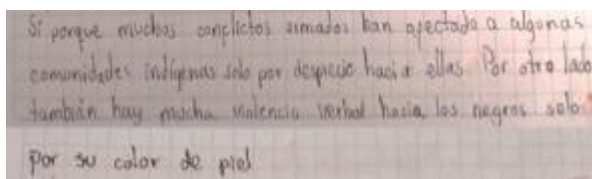 Si porque muchos conflictos armados han afectado a algunas
comunidades indígenas solo por desprecio hacia ellas Por otro lado
también hay mucha violencia verbal hacia los negros solo
por su color de piel